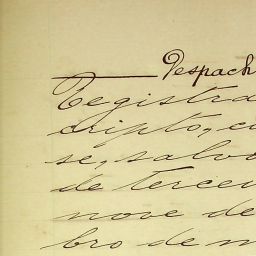 Despach
Registra
cripto, e
se, salvo
de tercei
nove de
bro de m